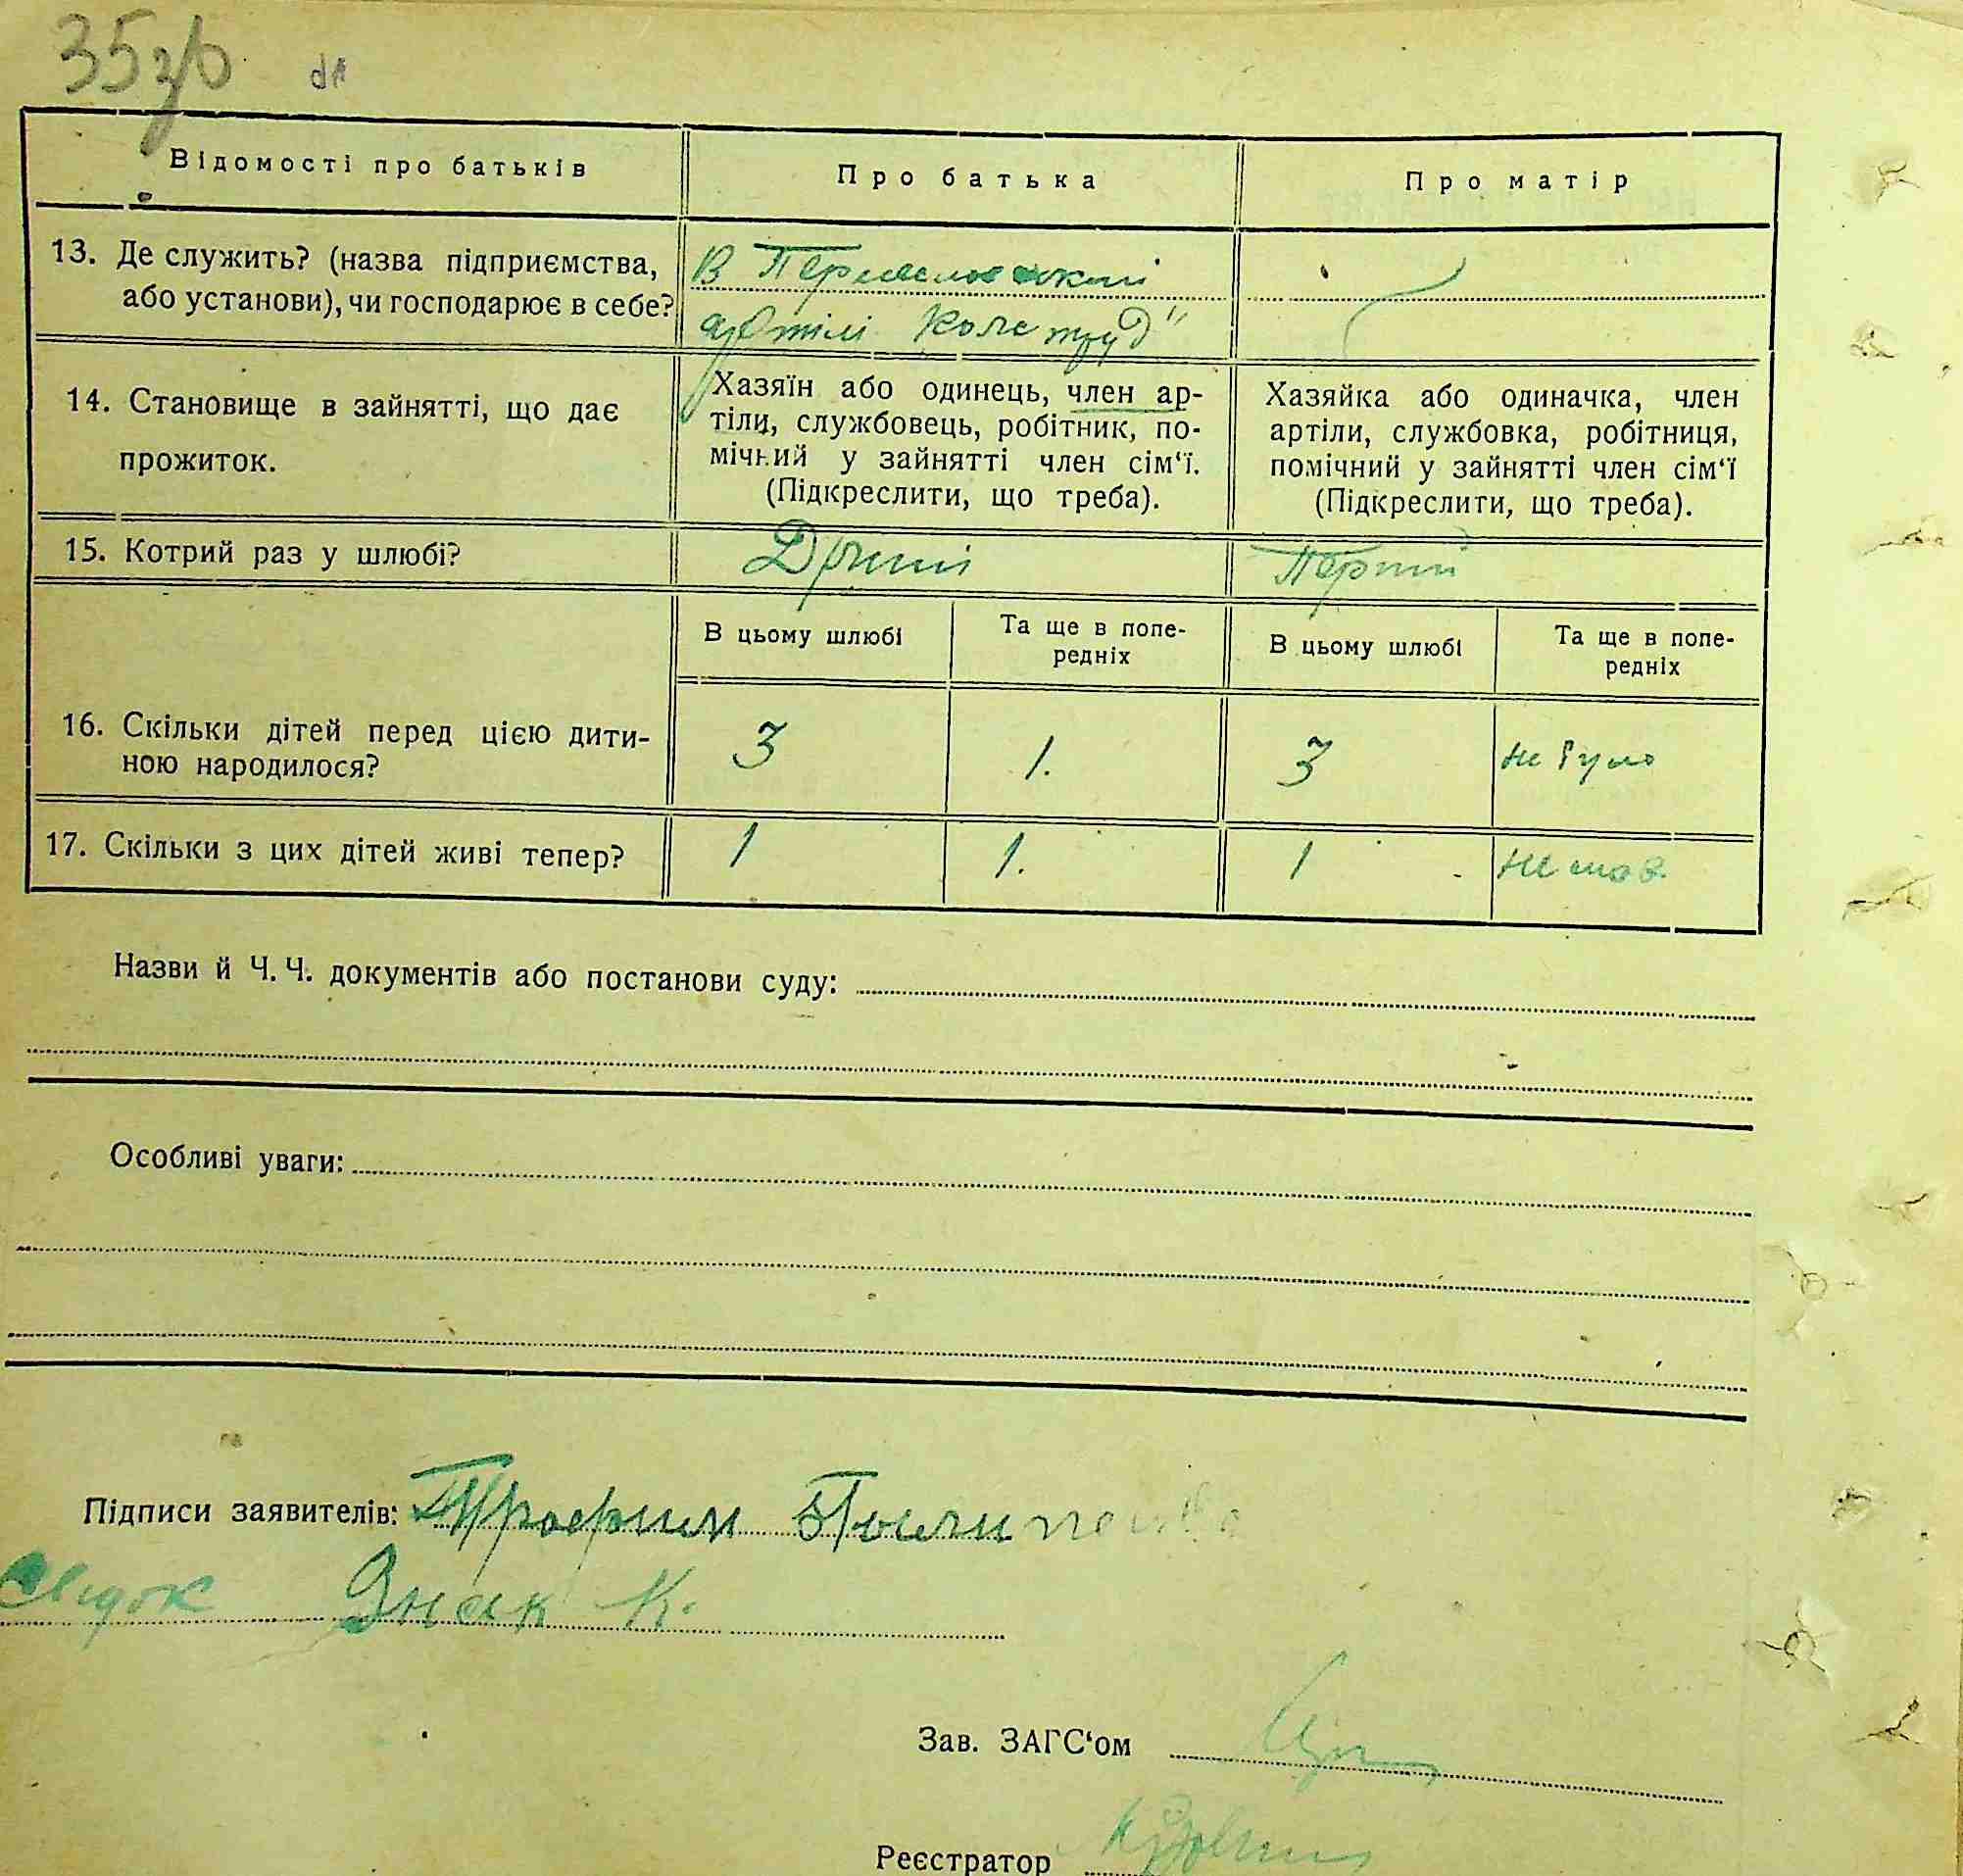 35 зв
Відомості про батьків
Про батька
Про матір
13. Де служить? (назва підприємства,
або установи), чи господарює в себе?
В
артілі Коле труд"
14. Становище в зайнятті, що дає
прожиток.
Хазяїн або одинець, член ар-
тіли, службовець, робітник, по-
мічний у зайнятті член сім‘ї.
(Підкреслити, що треба).
Хазяйка або одиначка, член
артіли, службовка, робітниця,
помічний у зайнятті член сім‘ї
(Підкреслити, що треба).
15. Котрий раз у шлюбі?
Другий
Перший
В цьому шлюбі
Та ще в попе-
редніх
В цьому шлюбі
Та ще в попе-
редніх
16. Скільки дітей перед цією дити-
ною народилося?
3
1.
3
не було
17. Скільки з цих дітей живі тепер?
1
1.
1
не мав.
Назви й Ч. Ч. документів або постанови суду:
Особливі уваги:
Підписи заявителів: Трофим
Свідок Зник К.
Зав. ЗАГС‘ом
Реєстратор